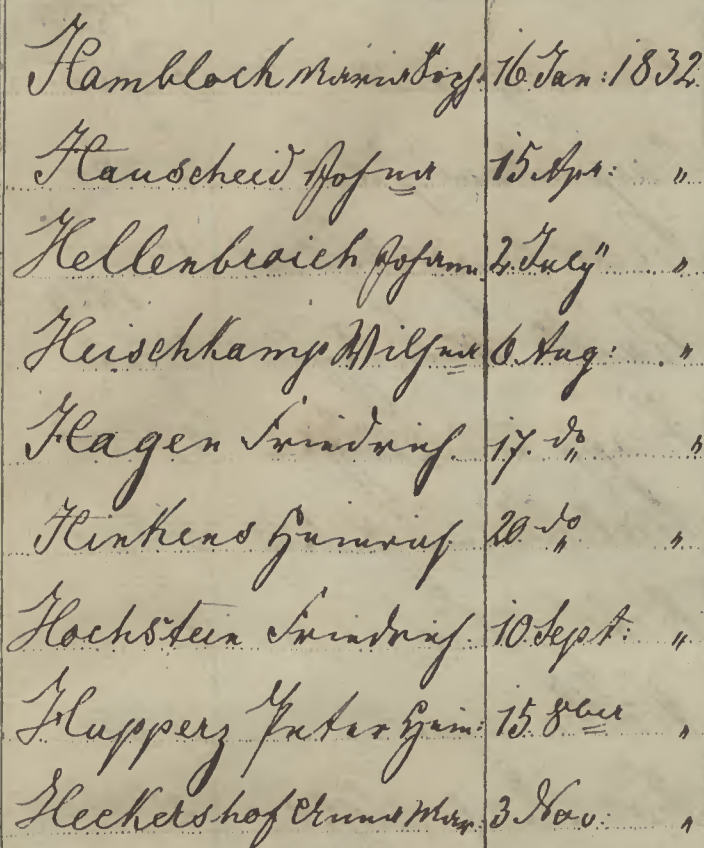 Hambloch Maria Soph: 16 Jan: 1832.
Hauscheid Johna 15 Apr: "
Hellenbroich Johann 2. July "
Heischkamp Wilhna 6 Aug: "
Hagen Friedrich. 17. do "
Hinkens Heinrich 20 do "
Hochstein Friedrich. 10 Sept: "
Hupperz Peter Hein: 15 8ber "
Heckershof Anna Mar: 3 Nov: "